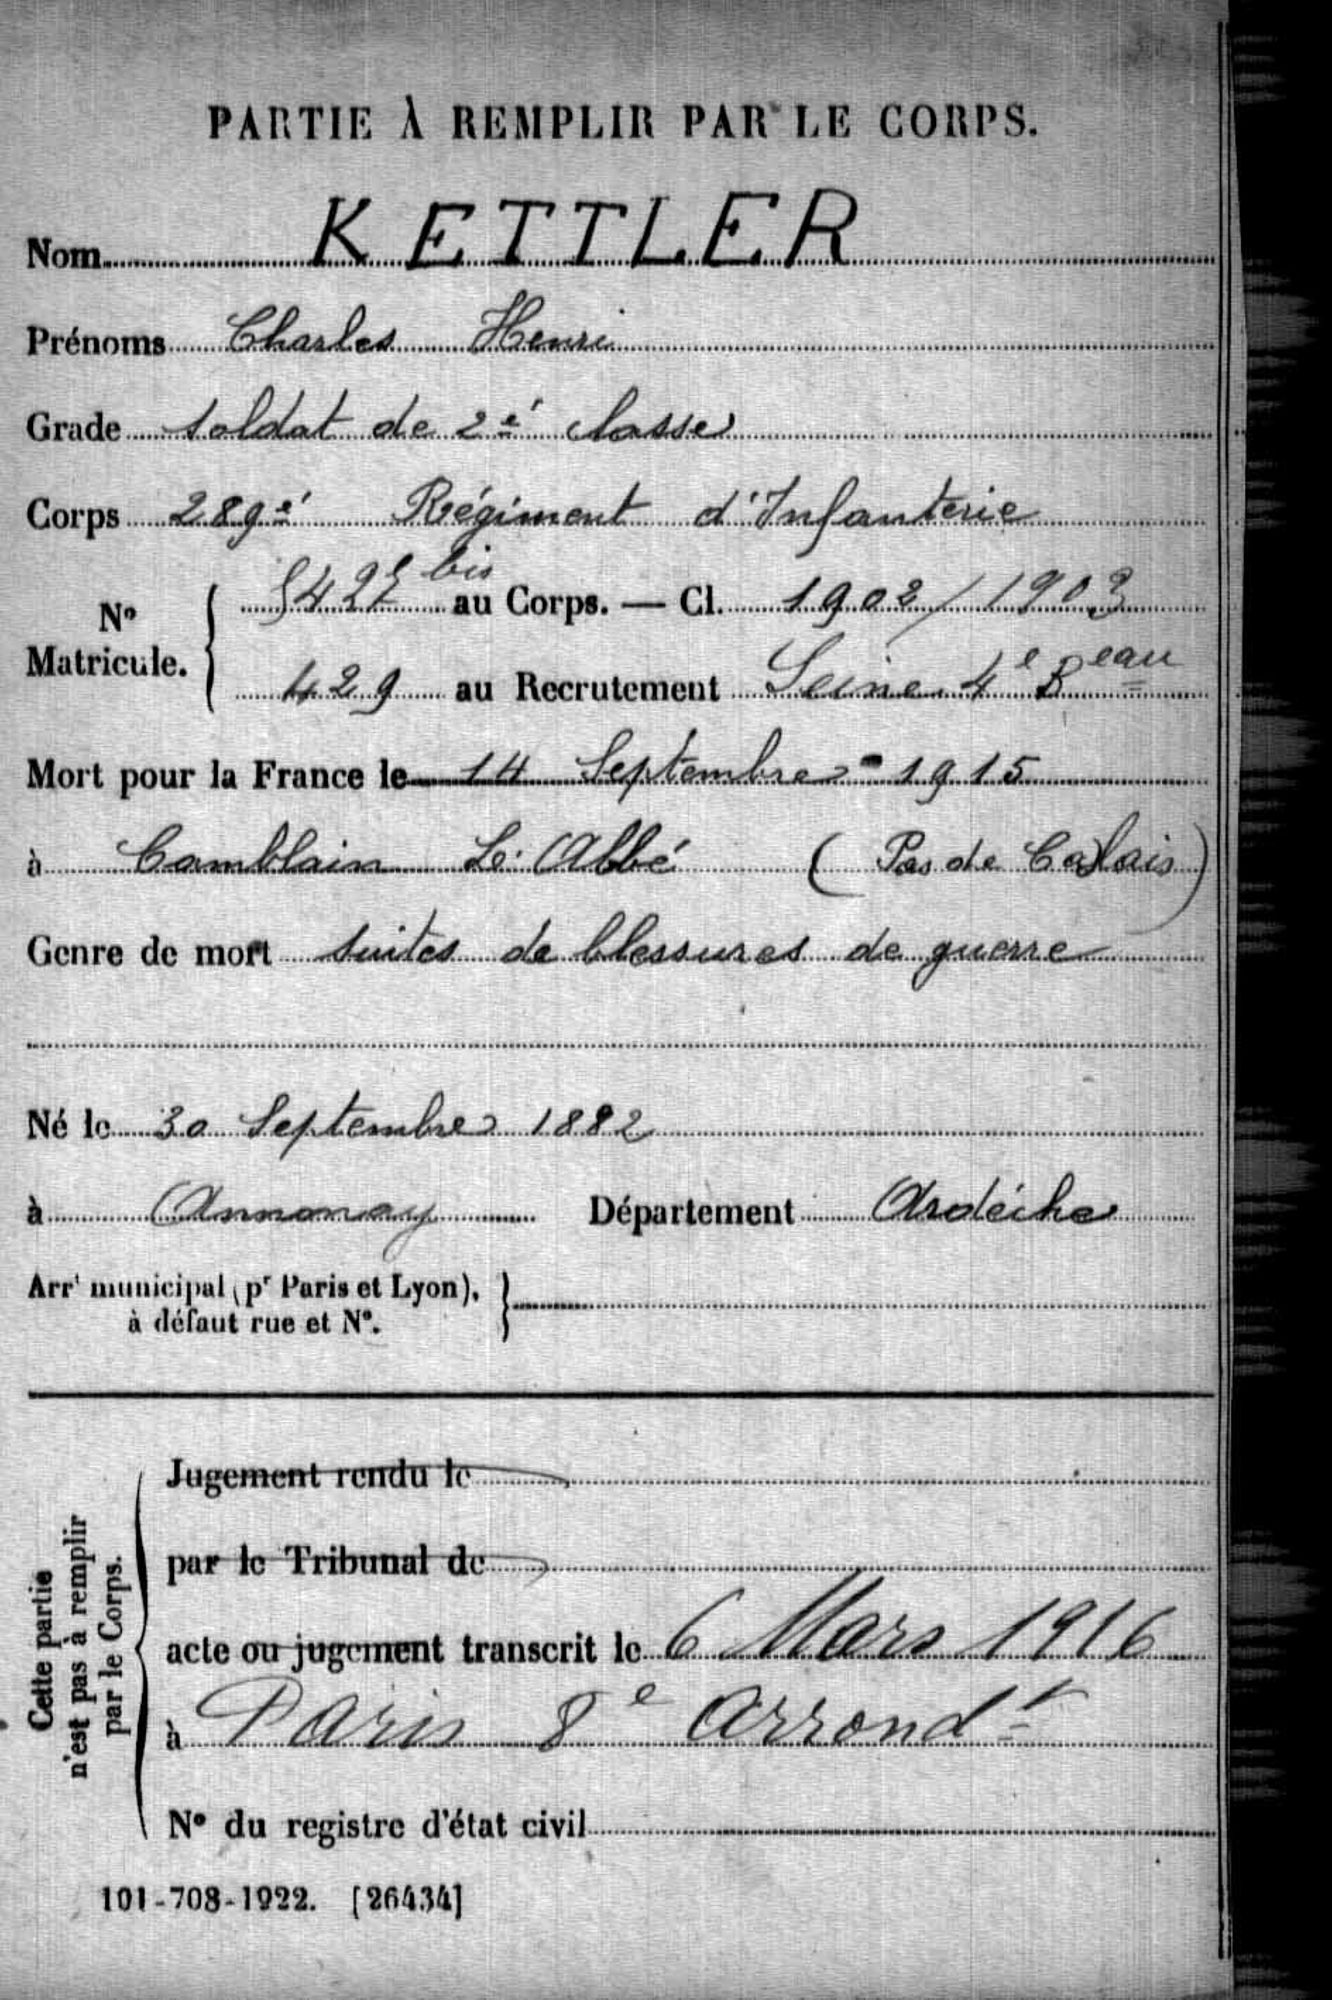 PARTIE À REMPLIR PAR LE CORPS.
Nom KETTLER
Prénoms Charles Henri
Grade soldat de 2è classe
Corps 289è Régiment d'Infanterie
N° Matricule. bis au Corps. — Cl. 1902/1903
429 au Recrutement Seine 4e Beau
Mort pour la France le 14 Septembre 1915
à Camblain L'Abbé (Pas de Calais)
Genre de mort suites de blessures de guerre
Né le 30 Septembre 1882
à Annonay Département Ardèche
Arrt municipal (pr Paris et Lyon), à défaut rue et N°.
Cette partie n'est pas à remplir par le Corps.
Jugement rendu le
par le Tribunal de
acte ou jugement transcrit le 6 Mars 1916
à Paris 8e arrondt
N° du registre d'état civil
101-708-1922. [26434]